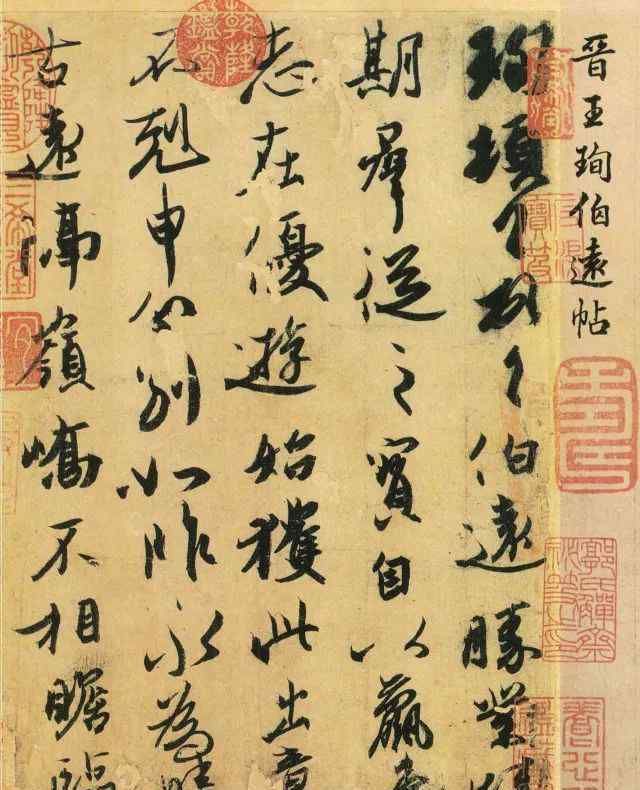 晉王珣伯遠帖
珣頓首頓首伯遠勝業
期羣從之寶自以羸
志在優遊始獲此出意
不剋申分別如昨永為
古遠隔嶺嶠不相瞻臨
乾隆鑑賞